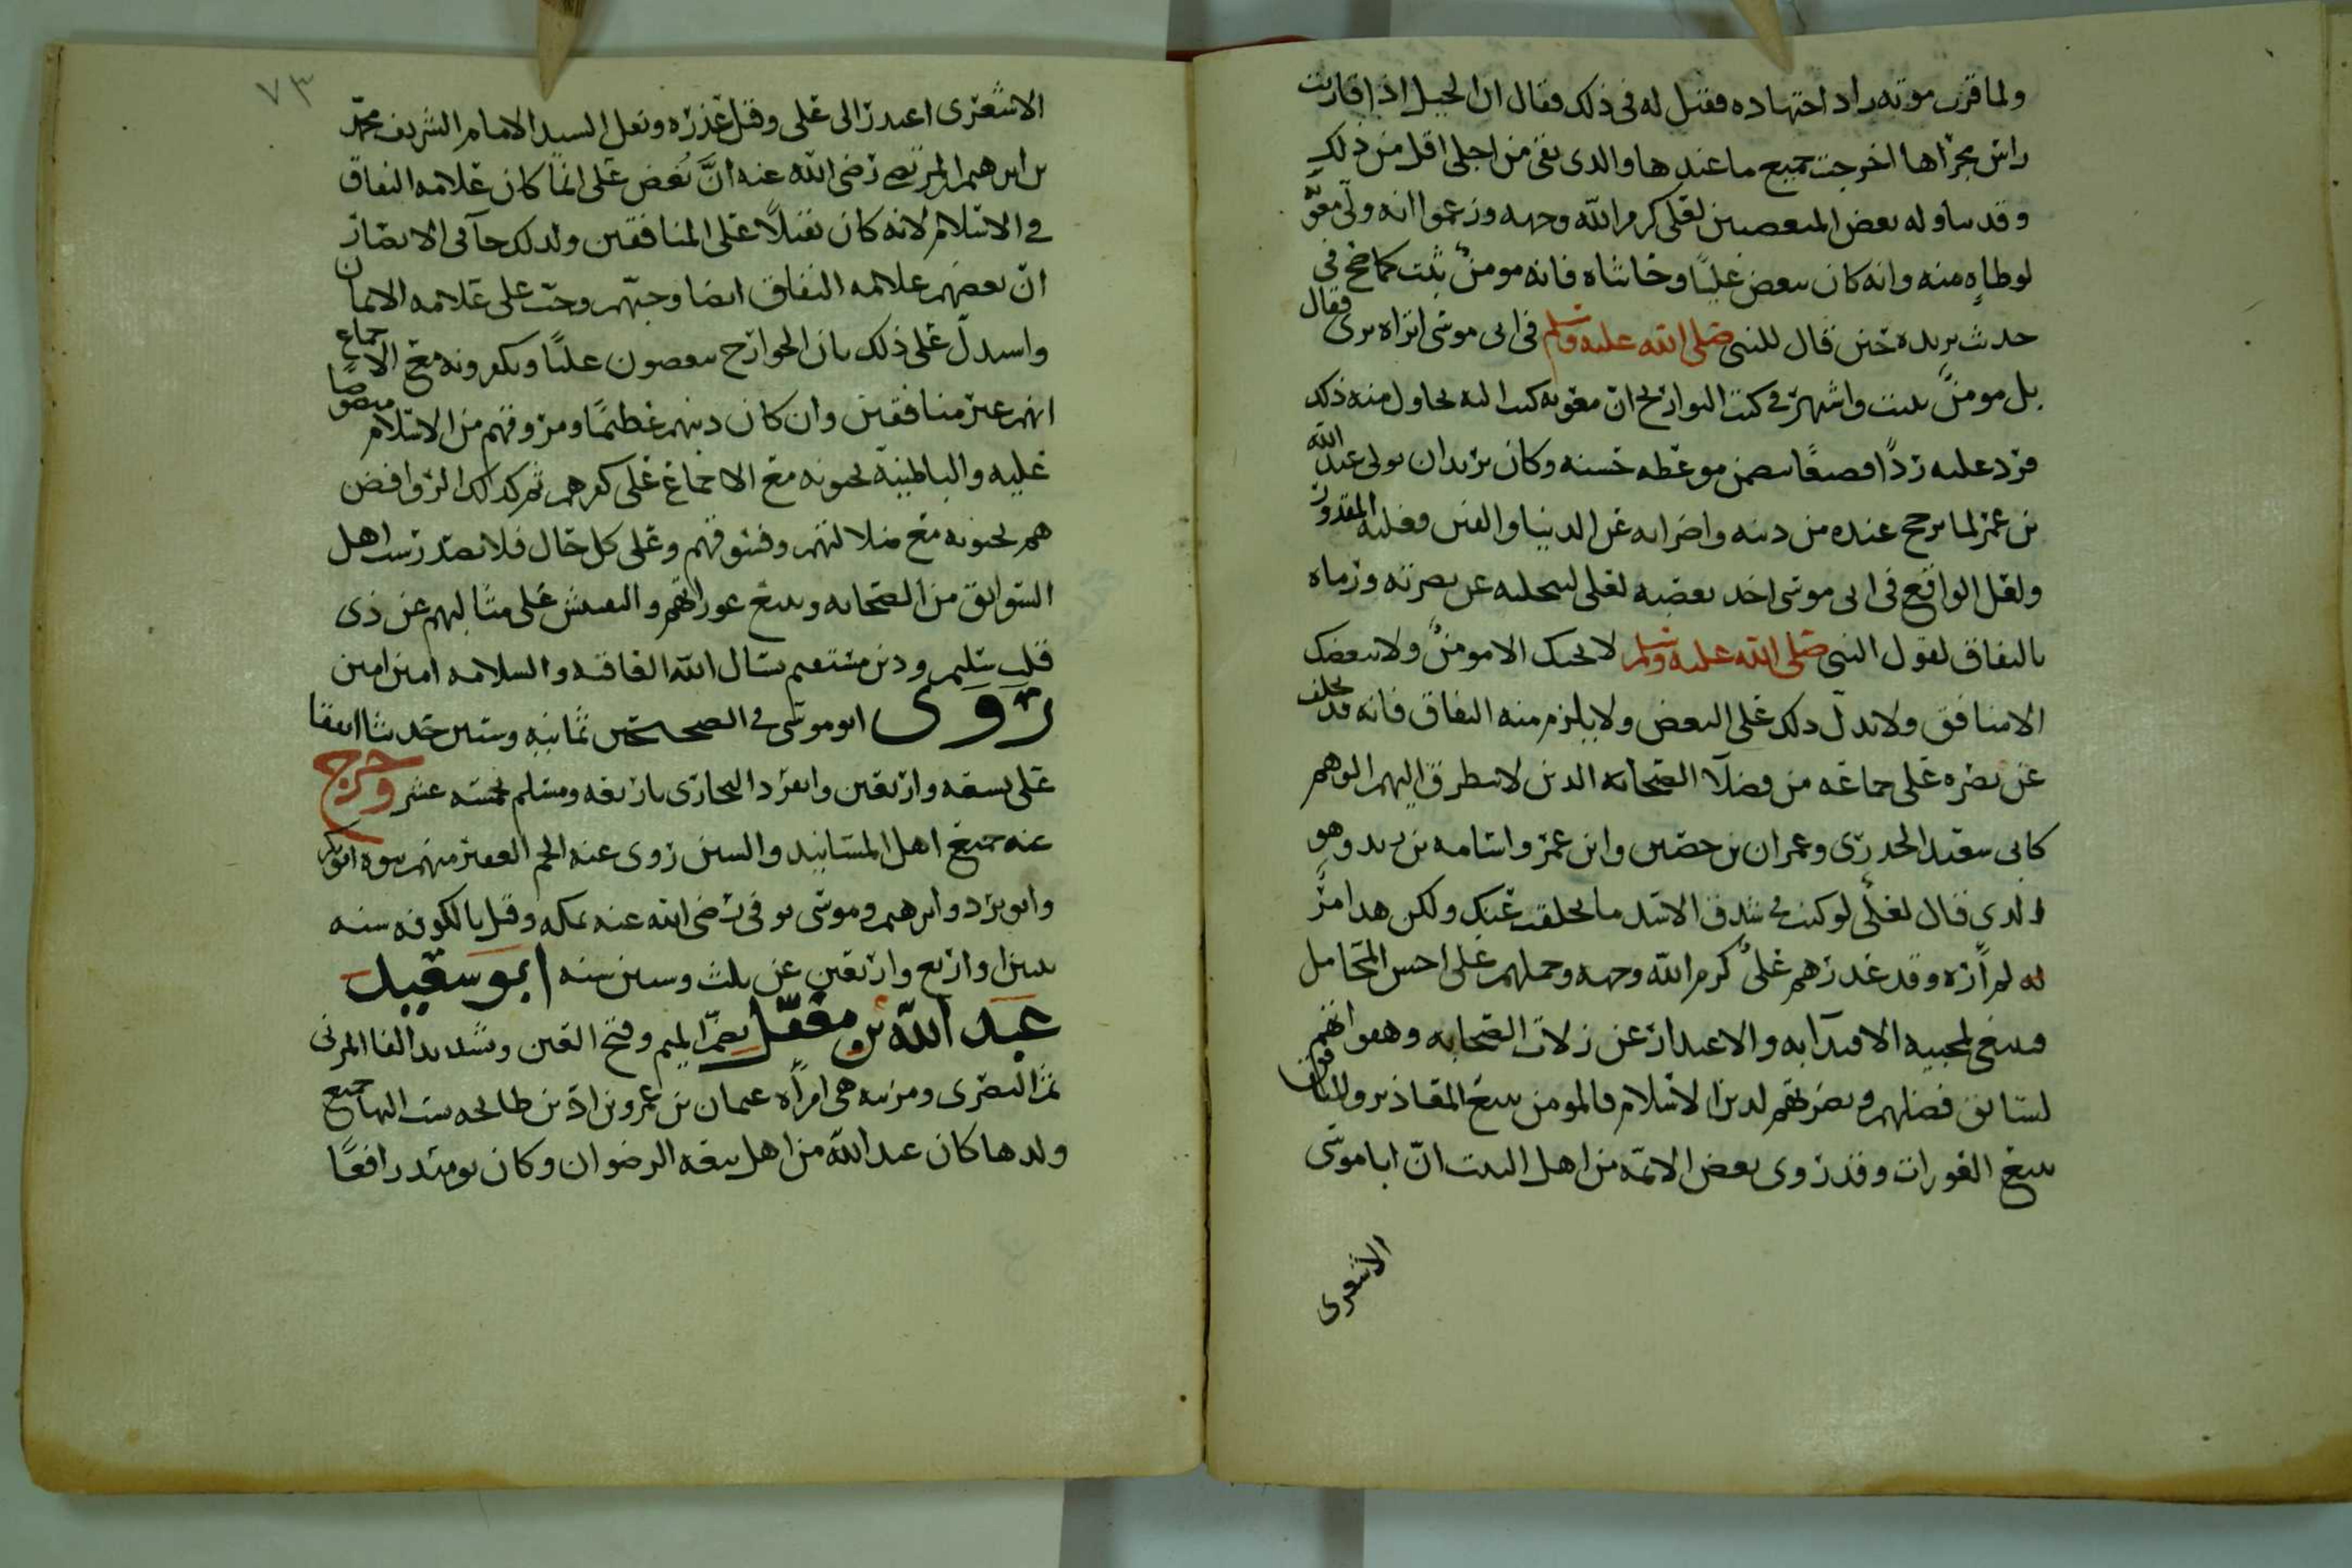 ولما قرب موته زاد اجتهاده فقيل له في ذلك فقال ان الخيل اذا قاربت
راس مجراها اخرجت جميع ما عندها والذي بقي من اجلي اقل من ذلك
وقد تناوله بعض المتعصبين لعلي كرم الله وجهه وزعموا انه ولى معوية
لوطاة منه وانه كان يبغض عليًا وحاشاه فانه مومنٌ ثبت كما صح في
حديث بريدة حين قال للنبي صلى الله عليه وسلم في ابي موسى اتراه يرى فقال
بل مومن منيب واشتهر في كتب التواريخ ان معوية كتب اليه يحاول منه ذلك
فرد عليه ردًا فصيعًا يتضمن موعظه حسنه وكان يريد ان يولى عبد الله
بن عمر لما ترجح عنده من دينه واضرابه عن الدنيا والفتن وغلبه المقدور
ولعل الواقع في ابي موسى اخذ بغضبه لعلي لتخليه عن نصرته ورماه
بالنفاق لقول النبي صلى الله عليه وسلم لا يحبك الا مومنٌ ولا يبغضك
الا منافق ولا يدل ذلك على البغض ولا يلزم منه النفاق فانه قد تخلف
عن نصره علي جماعه من فضلا الصحابه الذين لا يتطرق اليهم الوهم
كابي سعيد الخدري وعمران بن حصين وابن عمر واسامه بن زيد وهو
الذي قال لعلي لو كنت في شدق الاسد ما تخلفت عنك ولكن هذا امرٌ
لم أره وقد عذرهم عليٌ كرم الله وجهه وحملهم على احسن المحامل
فينبغي لمحبيه الاقتدآ به والاعتذار عن زلات الصحابه وهفواتهم
لسابق فضلهم ونصرتهم لدين الاسلام فالمومن يتبع المعاذير والمنافق
يتبع العورات وقد روى بعض الائمه من اهل البيت ان ابا موسى
الاشعري
٧٣
الاشعري اعتذر الى علي وقبل عذره ونقل السيد الامام الشريف محمد
بن ابرهيم المرتضى رضي الله عنه انَّ بُغض علي انما كان علامه النفاق
في اول الاسلام لانه كان ثقيلًا على المنافقين ولذلك جآ في الانصار
ان بغضهم علامه النفاق ايضا وحبّهم وحب علي علامه الايمان
واستدل على ذلك بان الخوارج يبغضون عليًا ويكفرونه مع الاجماع
انهم غير منافقين وان كان ذنبهم عظيمًا ومروقهم من الاسلام منصوصا
عليه والباطنيه يحبونه مع الاجماع على كفرهم ثم كذلك الروافض
هم يحبونه مع ضلالتهم وفسوقهم وعلى كل حال فلا يصدر سب اهل
السوابق من الصحابه وتتبع عوراتهم والتفتيش على مثالبهم عن ذي
قلب سليم ودين مستقيم نسال الله العافيه والسلامه امين امين
روى ابو موسى في الصحيحين ثمانيه وستين حديثا اتفقا
على تسعه واربعين وانفرد البخاري باربعه ومسلم بخمسه عشر وخرج
عنه جميع اهل المسانيد والسنن روى عنه الجم الغفير منهم بنوه ابوبكر
وابو برد وابرهيم وموسى توفي رضي الله عنه بمكه وقيل بالكوفه سنه
اثنين او اربع واربعين عن ثلث وستين سنه ابو سعيد
عبد الله بن مغفّل بضم الميم وفتح الغين وتشديد الفا المزني
ثم البصري ومزينه هي امرأه عثمان بن عمرو بن ادّ بن طابخه نسب اليها جميع
ولدها كان عبد الله من اهل بيعه الرضوان وكان يومئذ رافعًا